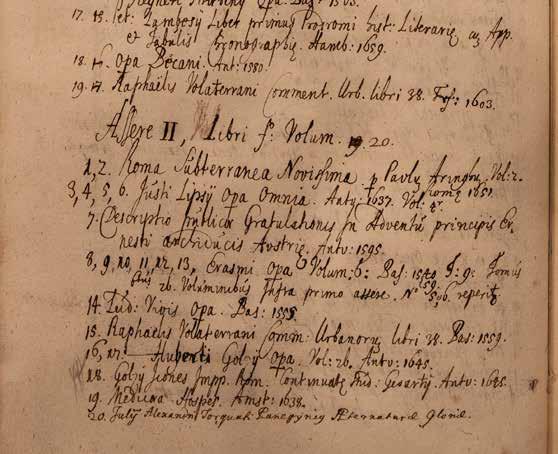 Opa. Bas: 1563.
17. 15. Pet: Lambecÿ Liber primus Prodromi Hist: Literarię cũ App.
et Tabulis Chronographię. Hamb: 1659.
18. 16. Opa Becani. Ant: 1580.
19. 17. Raphaëlis Volaterrani Comment. Urb. libri 38. 1603.
Assere II, Libri f: Volum. 20.
1, 2. Roma Subterranea Novissima p Pavlũ Aringhũ. Vol: 2. Romę 1651.
3, 4, 5, 6. Justi Lipsÿ Opa Omnia. Antv: 1637. Vol: 4r.
7. Descriptio publicę Gratulationis In Adventũ principis Er-
nesti archiducis Avstrię. Antv: 1595.
8, 9, 10, 11, 12, 13, Erasmi Opa. Volum: 6: Bas: 1540 T: 9: Tomus
2b. Voluminibus Infra primo assere. No 5, 6. reperit
14. Lud: Vivis Opa. Bas: 1555
15. Raphaëlis Volaterrani Comm: Urbanorũ libri 38. Bas: 1559.
16, 17. Huberti Golzÿ Opa. Vol: 2b. Antv: 1645.
18. Golzÿ Icones Impp. Rom. Continuatę Gevartÿ. Antv: 1645.
19. Medicina Hospes. Amst: 1638.
20. Julÿ Alexandri Torquati Panegyricg Æternaturæ Glorię.